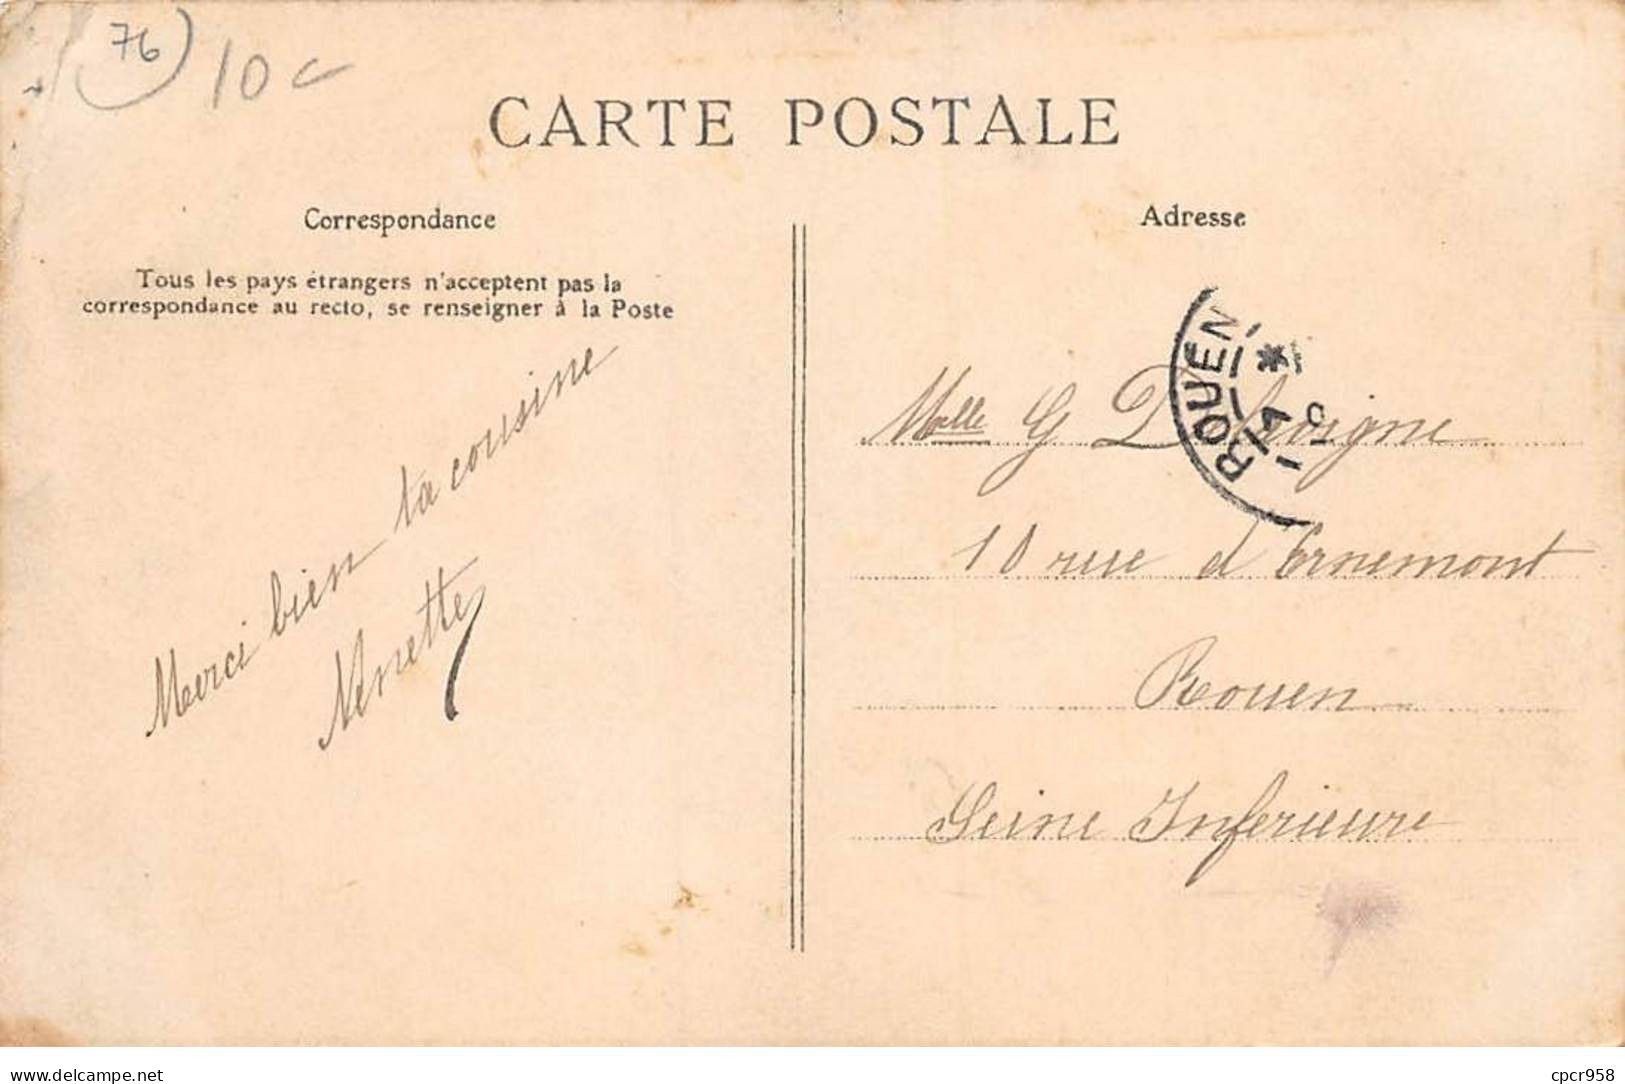 76
10 c
CARTE POSTALE
Correspondance
Adresse
Tous les pays étrangers n'acceptent pas la
correspondance au recto, se renseigner à la Poste
Merci bien ta cousine
Ninette
ROUEN
Melle G
10 rue d'Ernemont
Rouen
Seine Inferieure
www.delcampe.net
cpcr958